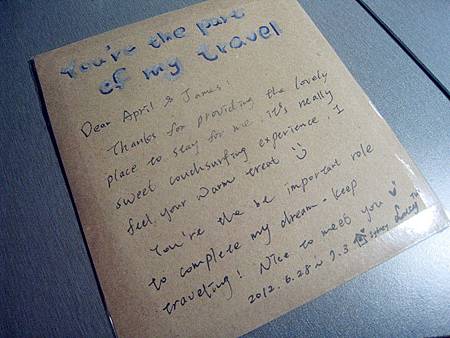 You're the part
of my travel
Dear April & James!
Thanks for providing the lovely
place to stay for me. it's really
sweet couchsurfing experience. I
feel your warm treat
You're the be important role
to complete my dream. keep
traveling! Nice to meet you
2012.6.28~7.3 Sydney